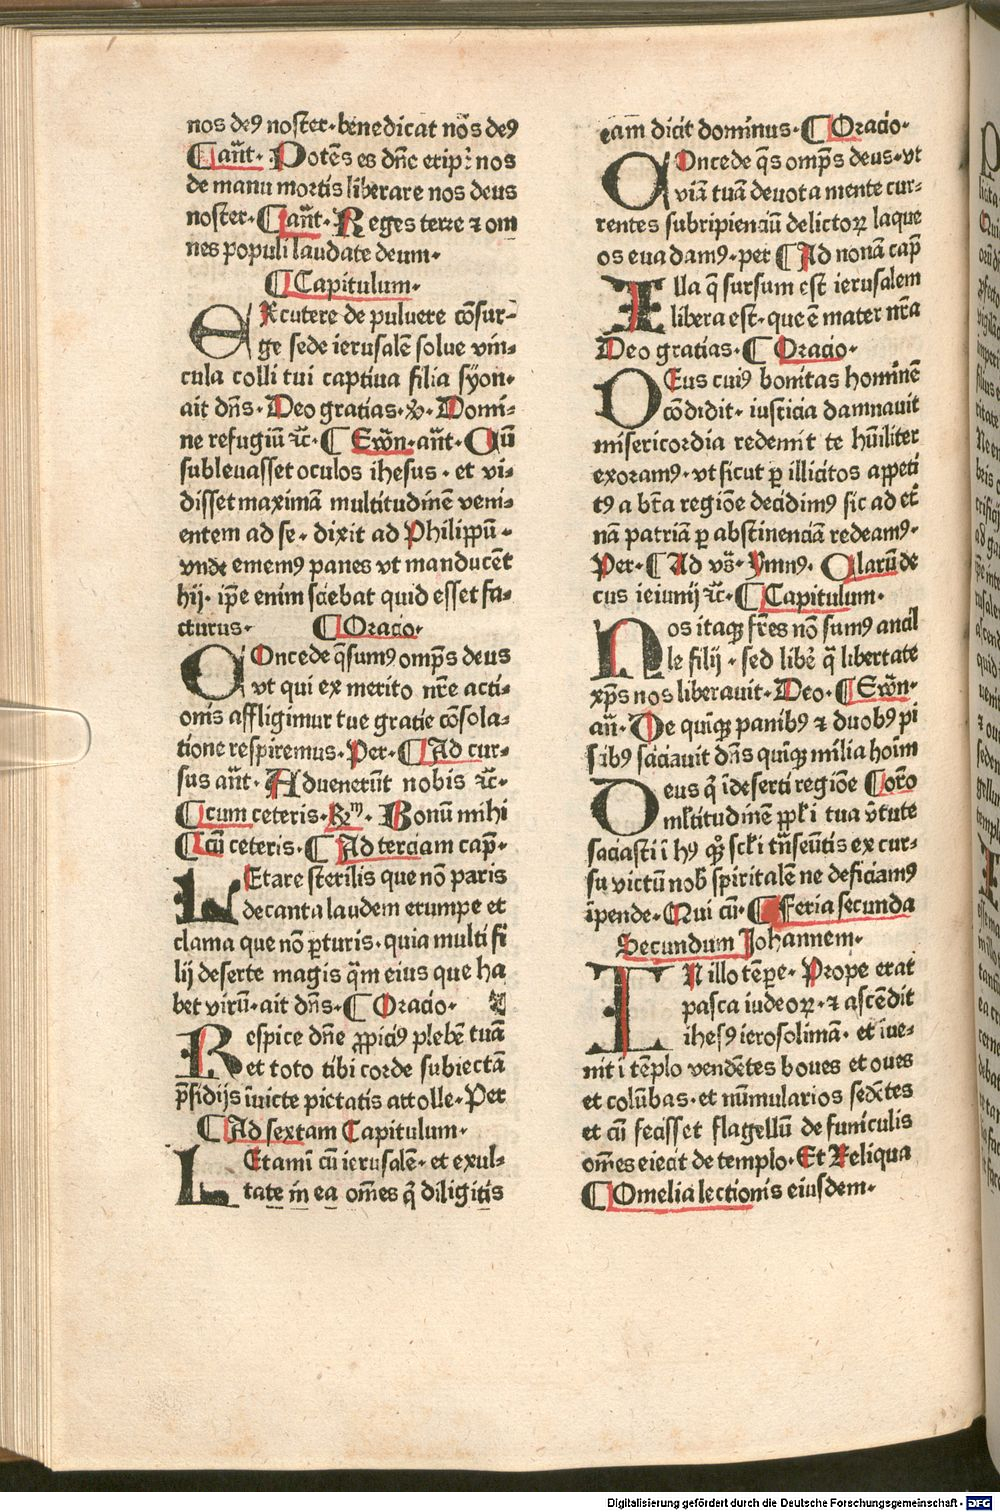 nos deꝯ noster · benedicat nōs deꝯ
¶ an̄t · Potēs es dn̄e eripꝛ̄ nos
de manu mortis liberare nos deus
noster · ¶ an̄t · Reges terre ⁊ om
nes populi laudate deum ·
¶ Capitulum ·
EXcutere de puluere cōsur⸗
ge sede ierusalē solue vin⸗
cula colli tui captiua filia syon ·
ait dn̄s · Deo gratias · ꝟ · Domi⸗
ne refugiū ⁊c̄ · ¶ Ewn̄ · an̄t · Cū
subleuasset oculos ihesus · et vi⸗
disset maximā multitudinē veni⸗
entem ad se · dixit ad Philippū ·
vnde ememꝯ panes vt manducēt
hij · ip̄e enim sciebat quid esset fa⸗
cturus · ¶ Oracio ·
COncede q̄sumꝯ omp̄s deus
vt qui ex merito nr̄e acti⸗
onis affligimur tue gratie cōsola⸗
tione respiremus · Per · ¶ Ad cur⸗
sus an̄t · Aduenerūt nobis ⁊c̄ ·
¶ cum ceteris · Rꝫᵐ · Bonū mihi
¶ cū ceteris · ¶ Ad terciam cap̄ ·
LEtare sterilis que nō paris
decanta laudem erumpe et
clama que nō ꝑturis · quia multi fi
lij deserte magis q̄m eius que ha
bet virū · ait dn̄s · ¶ Oracio ·
Respice dn̄e ꝓpiciꝯ plebē tuā
et toto tibi corde subiectā
p̄sidijs īuicte pietatis attolle · Per
¶ Ad sextam Capitulum ·
LEtamī cū ierusalē · et exul⸗
tate in ea om̄es q̄ diligitis
eam dicit dominus · ¶ Oracio ·
COncede q̄s omp̄s deus · vt
viā tuā deuota mente cur⸗
rentes subripienciū delictoꝝ laque
os euadamꝯ · per ¶ Ad nonā cap̄
Illa q̄ sursum est ierusalem
libera est · que ē mater nr̄a
Deo gratias · ¶ Oracio ·
DEus cuiꝯ bonitas hominē
cōdidit · iusticia damnauit
misericordia redemit te hūiliter
exoramꝯ · vt sicut ꝑ illicitos appeti
tꝯ a bt̄a regiōe decidimꝯ sic ad et̄
nā patriā ꝑ abstinenciā redeamꝯ ·
Per · ¶ Ad vs̄ · Ymnꝯ · Clarū de
cus ieiunij ⁊c̄ · ¶ Capitulum ·
Nos itaqꝫ fr̄es nō sumꝯ ancil
le filij · sed libē q̄ libertate
xp̄s nos liberauit · Deo · ¶ Ewn̄ ·
an̄ · De quīqꝫ panibꝯ ⁊ duobꝯ pi
scibꝯ saciauit dn̄s quīqꝫ milia hoīm
Deus qͥ ī deserti regiōe ¶ oro̅
mltitudinē ppłi tua v̄tute
saciasti ī hꝯ qͦꝫ scłi trn̄seūtis excur⸗
su victū nob̄ spiritalē ne deficiamꝯ
īpende · Qui cū · ¶ Feria secunda
Secundum Johannem ·
IN illo tēpe · Prope erat
pasca iudeoꝝ · ⁊ ascēdit
ihesꝯ ierosolimā · et īue⸗
nit ī tēplo vendētes boues et oues
et colūbas · et nūmularios sedētes
et cū fecisset flagellū de funiculis
om̄es eiecit de templo · Et Reliqua
¶ Omelia lectionis eiusdem ·
Digitalisierung gefördert durch die Deutsche Forschungsgemeinschaft - DFG